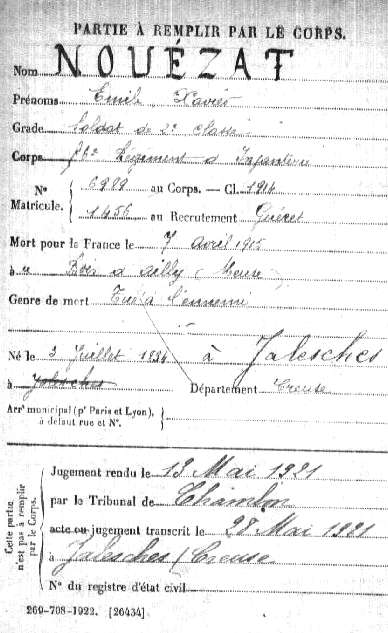 PARTIE À REMPLIR PAR LE CORPS.
Nom NOUEZAT
Prénoms Emile Xavier
Grade Soldat de 2e classe
Corps Régiment d'Infanterie
N° 6988 au Corps. — Cl. 1914
Matricule. 1456 au Recrutement Guéret
Mort pour la France le 7 avril 1915
à Bois d'Ailly (Meuse)
Genre de mort Tué à l'ennemi
Né le 3 Juillet 1894 à Jalesches
à Jalesches Département Creuse
Arrt municipal (pr Paris et Lyon),
à défaut rue et N°.
Cette partie n'est pas à remplir par le Corps.
Jugement rendu le 13 Mai 1921
par le Tribunal de Chambon
acte ou jugement transcrit le 28 Mai 1921
à Jalesches (Creuse
N° du registre d'état civil
269-708-1922. [26434]